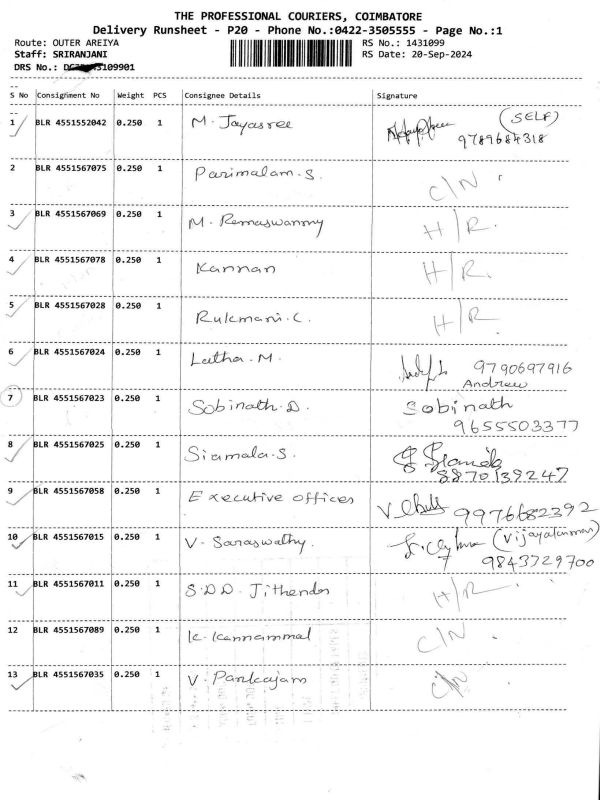 THE PROFESSIONAL COURIERS, COIMBATORE
Delivery Runsheet - P20 - Phone No.:0422-3505555 - Page No.:1
Route: OUTER AREIYA RS No.: 1431099
Staff: SRIRANJANI RS Date: 20-Sep-2024
DRS No.:
S No Consignment No Weight PCS Consignee Details Signature
1 BLR 4551552042 0.250 1 M. Jayasree (SELF)
9789684318
2 BLR 4551567075 0.250 1 Parimalam.S. C/N
3 BLR 4551567069 0.250 1 M. Remaswammy H/R.
4 BLR 4551567078 0.250 1 Kannan H/R.
5 BLR 4551567028 0.250 1 Rukmani.C. H/R
6 BLR 4551567024 0.250 1 Latha.M. 9790697916
Andrew
7 BLR 4551567023 0.250 1 Sobinath.D. Sobinath
9655503377
8 BLR 4551567025 0.250 1 Siamala.S.
8870139247
9 BLR 4551567058 0.250 1 Executive offices 9976682392
10 BLR 4551567015 0.250 1 V. Saraswathy.
9843729700
11 BLR 4551567011 0.250 1 S.D.D. Jithendar H/R.
12 BLR 4551567089 0.250 1 K. Kannammal C/N
13 BLR 4551567035 0.250 1 V. Pankajam C/N